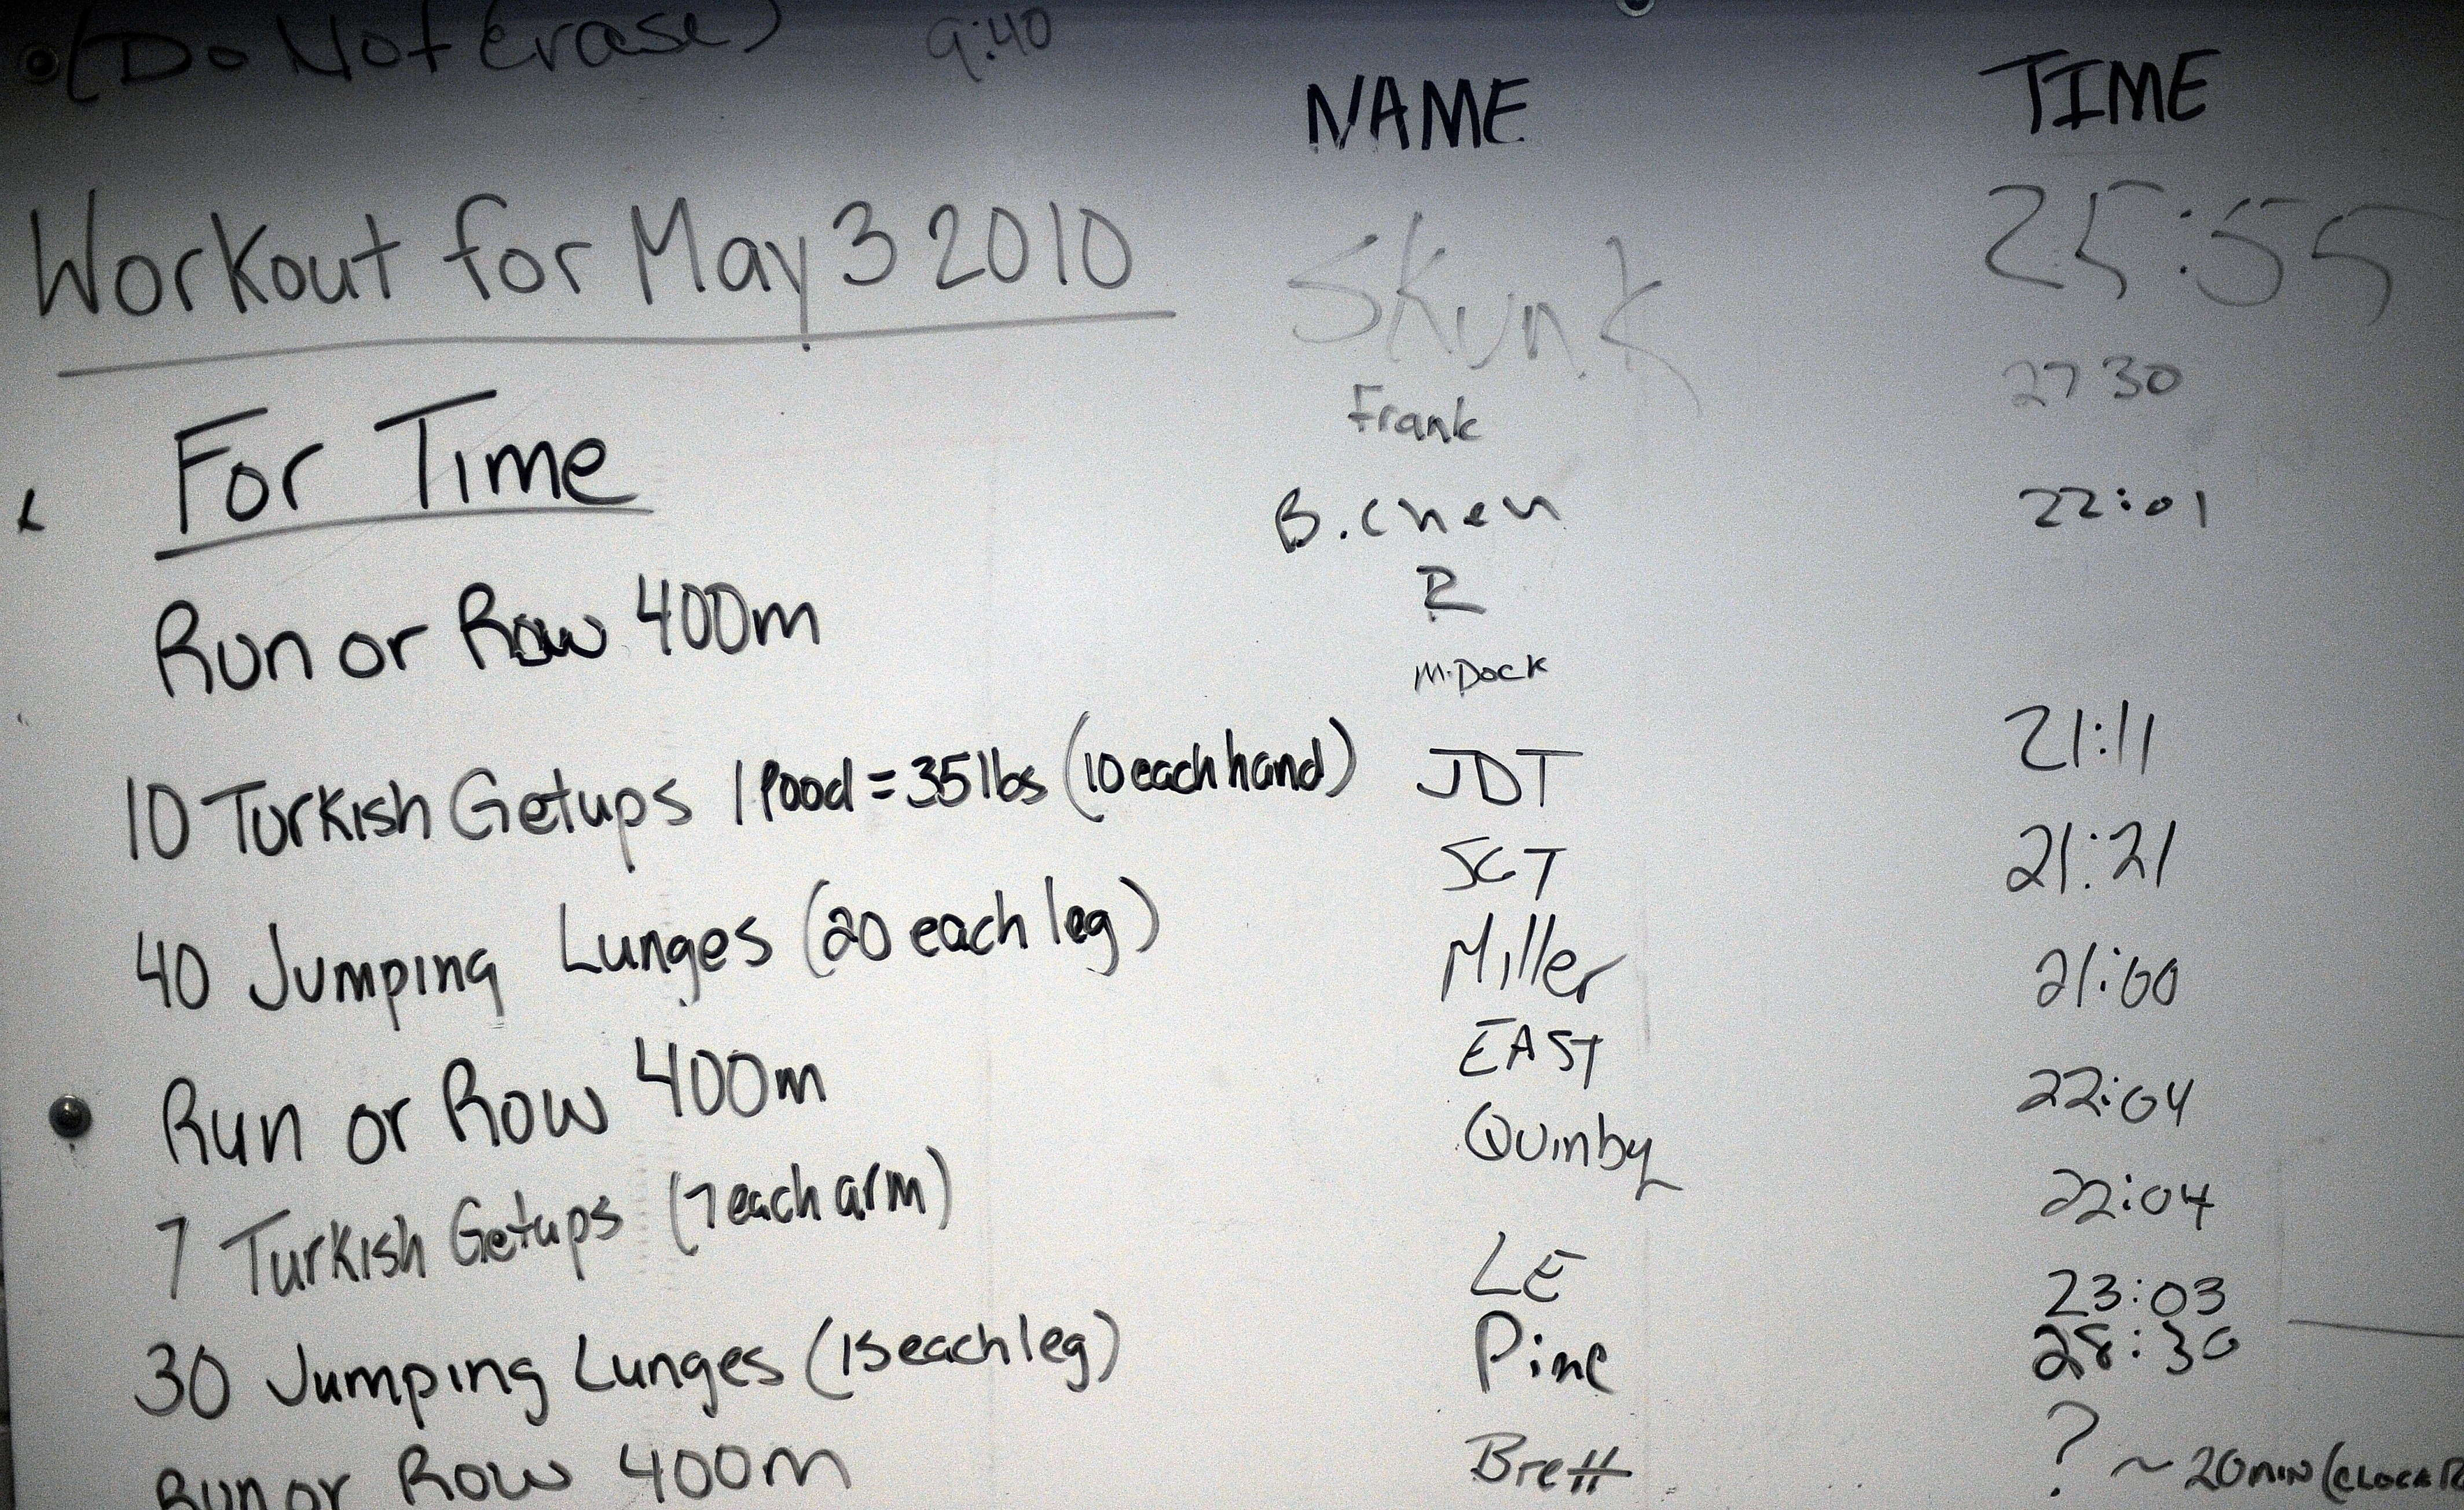 (Do Not Erase) 9:40
NAME
TIME
Workout for May 3 2010
For Time
Run or Row 400m
10 Turkish Getups 1 Pood = 35lbs (10 each hand)
40 Jumping Lunges (20 each leg)
Run or Row 400m
7 Turkish Getups (7 each arm)
30 Jumping Lunges (15 each leg)
Run or Row 400m
Skunk 25:55
Frank 27 30
B. Chen 22:01
R
M. Dock
JDT 21:11
SCT 21:21
Miller 21:00
EAST 22:04
Quinby 22:04
LE 23:03
Pine 28:30
Brett ? ~20min (CLOCK